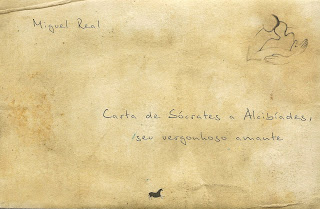 Miguel Real
Carta de Sócrates a Alcibíades,
seu vergonhoso amante